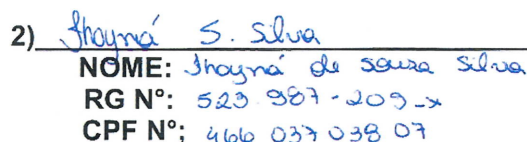 2) Thayná S. Silva
NOME: Thayná de souza Silva
RG N°: 523.987-209-x
CPF N°: 466 037 038 07